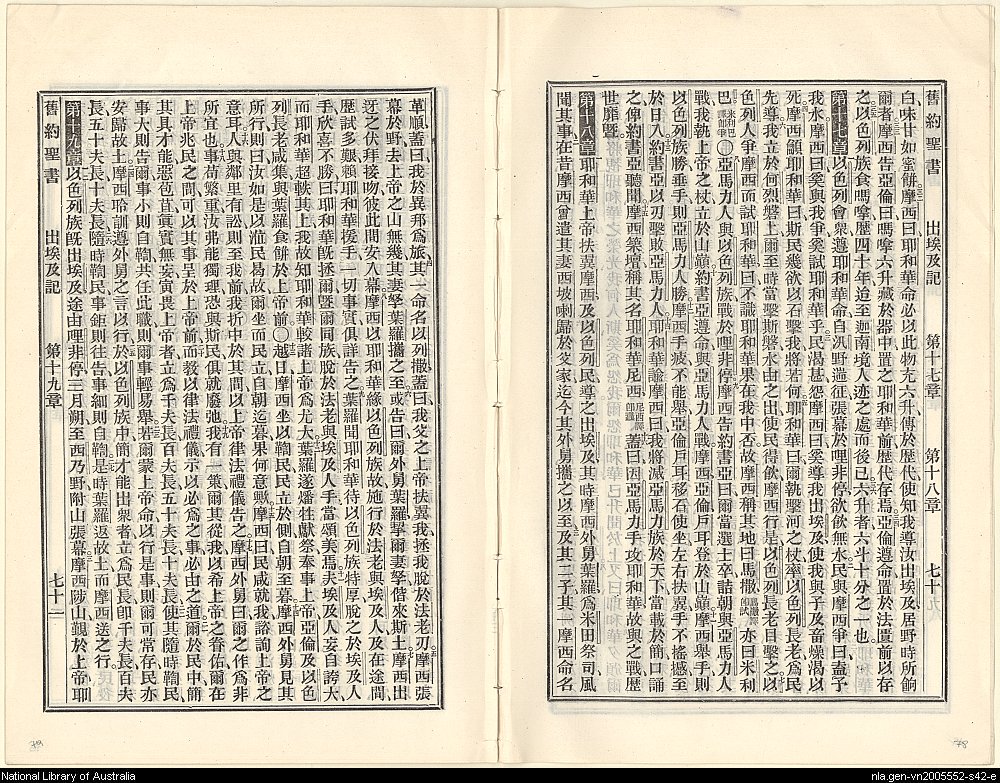 舊約聖書 出埃及記 第十七章 第十八章 七十
白味甘如蜜餅摩西曰耶和華命必以此物充六升傳於歷代使知我導汝出埃及居野時所餉
爾者摩西告亞倫曰嗎拏六升藏於器中置之耶和華前歷代存焉亞倫遵命置於法匱前以存
之以色列族食嗎拏歷四十年迨至迦南境人迹之處而後已六升者六斗十分之一也
第十七章以色列會衆遵耶和華命自汎野遄征張幕於哩非停欲飲無水民與摩西爭曰盍予
我水摩西曰奚與我爭奚試耶和華乎民渴甚怨摩西曰奚導我出埃及使我與子及畜燥渴以
死摩西籲耶和華曰斯民幾欲以石擊我將若何耶和華曰爾執擊河之杖率以色列長老爲民
先導我立於何烈磐上爾至時當擊斯磐水由之出使民得飲摩西行是以色列長老目擊之以
色列人爭摩西而試耶和華曰不識耶和華果在我中否故摩西稱其地曰馬撒亦曰米利
巴〇亞馬力人與以色列族戰於哩非停摩西告約書亞曰爾當選士卒詰朝與亞馬力人
戰我執上帝之杖立於山巔約書亞遵命與亞馬力人戰摩西亞倫戶耳登於山巔摩西舉手則
以色列族勝垂手則亞馬力人勝摩西手疲不能舉亞倫戶耳移石使坐左右扶翼手不搖撼至
於日入約書亞以刃擊敗亞馬力人耶和華諭摩西曰我將滅亞馬力族於天下當載於簡口誦
之俾約書亞聽聞摩西築壇稱其名耶和華尼西蓋曰因亞馬力手攻耶和華故與之戰歷
世靡曁
第十八章耶和華上帝扶翼摩西及以色列民導之出埃及其時摩西外舅葉羅爲米田祭司風
聞其事在昔摩西曾遣其妻西坡喇歸於父家迄今其外舅攜之以至及其二子其一摩西命名
革順蓋曰我於異邦爲旅其一命名以列撒蓋曰我父之上帝扶翼我拯我脫於法老刃摩西張
幕於野去上帝之山無幾其妻孥葉羅攜之至或告曰爾外舅葉羅挈爾妻孥偕來斯土摩西出
迓之伏拜接吻彼此問安入幕摩西以耶和華緣以色列族故施行於法老與埃及人及在途間
歷試多艱賴耶和華援手一切事實俱詳告之葉羅聞耶和華待以色列族特厚脫之於埃及人
手欣喜不勝曰耶和華旣拯爾曁爾同族脫於法老與埃及人手當頌美焉夫埃及人妄自誇大
而耶和華超軼其上我故知耶和華較諸上帝爲尤大葉羅遂燔牲獻祭奉事上帝亞倫及以色
列長老咸集與葉羅食餅於上帝前〇越日摩西坐以鞫民民立於側自朝至暮摩西外舅見其
所行則曰汝如是以涖民曷故爾坐而民立自朝迄暮果何意歟摩西曰民咸就我諮詢上帝之
意耳人與鄰里有訟則至我前我折中於其間以上帝律法禮儀告之摩西外舅曰爾之作爲非
所宜也事苛繁重汝弗能獨理恐與斯民俱就廢弛我有一策爾其從我以希上帝之眷佑爾在
上帝兆民之間可以其事呈於上帝前而敎以律法禮儀示以必爲之事必由之道爾於民中簡
其具才能惡苞苴眞實無妄寅畏上帝者立爲千夫長百夫長五十夫長十夫長使其隨時鞫民
事大則告爾事小則自鞫共任此職則爾事輕易舉若爾蒙上帝命以行是事則爾可常存民亦
安歸故土摩西聆訓遵外舅之言以行於以色列族中簡才能出衆者立爲民長卽千夫長百夫
長五十夫長十夫長隨時鞫民事鉅則往告事細則自鞫是時葉羅返故土而摩西送之行
第十九章以色列族旣出埃及途由哩非停三月朔至西乃野附山張幕摩西陟山覲於上帝耶
舊約聖書 出埃及記 第十九章 七十一
National Library of Australia
nla.gen-vn2005552-s42-e
78